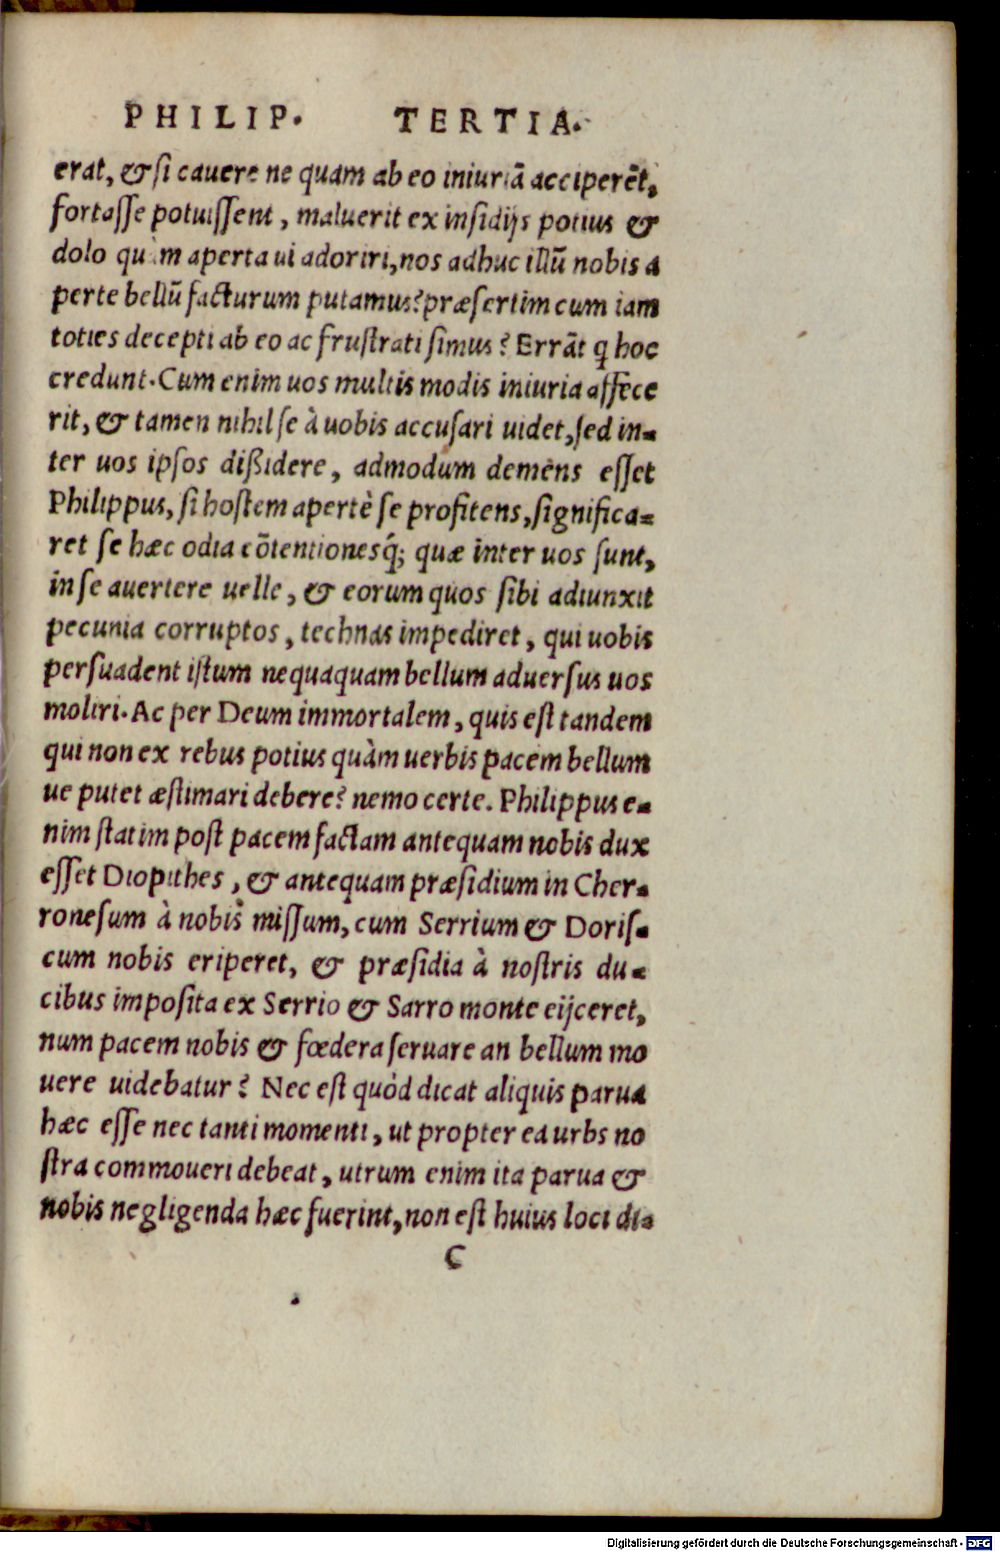 PHILIP. TERTIA.
erat, & si cauere ne quam ab eo iniuriā acciperēt,
fortasse potuissent, maluerit ex insidijs potius &
dolo quàm aperta ui adoriri, nos adhuc illū nobis a
perte bellū facturum putamus? præsertim cum iam
toties decepti ab eo ac frustrati simus? Errāt q hoc
credunt. Cum enim uos multis modis iniuria affece
rit, & tamen nihil se à uobis accusari uidet, sed in-
ter uos ipsos dißidere, admodum demens esset
Philippus, si hostem apertè se profitens, significa-
ret se hæc odia cōtentionesq́; quæ inter uos sunt,
in se auertere uelle, & eorum quos sibi adiunxit
pecunia corruptos, technas impediret, qui uobis
persuadent istum nequaquam bellum aduersus uos
moliri. Ac per Deum immortalem, quis est tandem
qui non ex rebus potius quàm uerbis pacem bellum
ue putet æstimari debere? nemo certe. Philippus e-
nim statim post pacem factam antequam nobis dux
esset Diopithes, & antequam præsidium in Cher-
ronesum à nobis missum, cum Serrium & Doris-
cum nobis eriperet, & præsidia à nostris du-
cibus imposita ex Serrio & Sarro monte eijceret,
num pacem nobis & fœdera seruare an bellum mo
uere uidebatur? Nec est quòd dicat aliquis parua
hæc esse nec tanti momenti, ut propter ea urbs no
stra commoueri debeat, utrum enim ita parua &
nobis negligenda hæc fuerint, non est huius loci di-
C
Digitalisierung gefördert durch die Deutsche Forschungsgemeinschaft - DFG